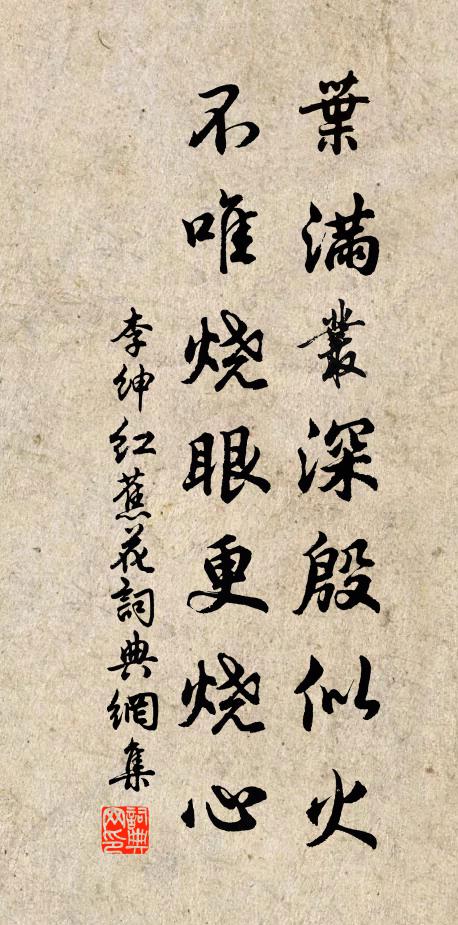 葉滿叢深殷似火
不唯烧眼更烧心
李紳紅蕉花詞典網集
詞典网印